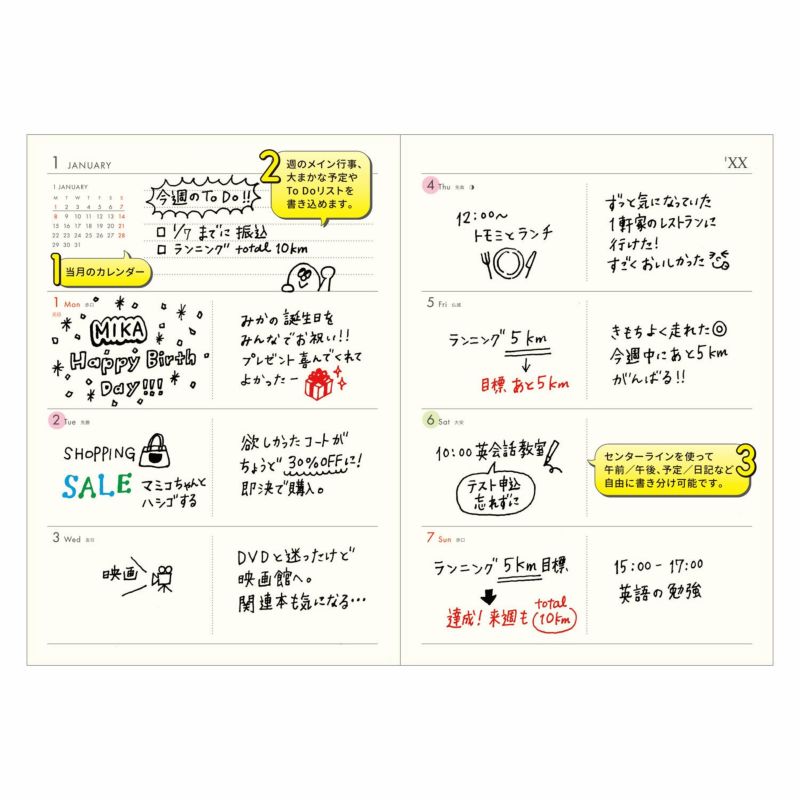 1 JANUARY
1 JANUARY
M T W T F S S
1 2 3 4 5 6 7
8 9 10 11 12 13 14
15 16 17 18 19 20 21
22 23 24 25 26 27 28
29 30 31
今週のTo Do!!
□ 1/7 までに振込
□ ランニング total 10km
2 週のメイン行事、
大まかな予定や
To Doリストを
書き込めます。
1 当月のカレンダー
1 Mon 赤口
元日
MIKA
Happy Birth
Day!!!
みかの誕生日を
みんなでお祝い!!
プレゼント喜んでくれて
よかったー
2 Tue 先勝
SHOPPING
SALE マミコちゃんと
ハシゴする
欲しかったコートが
ちょうど30%OFFに!
即決で購入。
3 Wed 友引
映画
DVDと迷ったけど
映画館へ。
関連本も気になる…
'XX
4 Thu 先負
12:00~
トモミとランチ
ずっと気になっていた
1軒家のレストランに
行けた!
すごくおいしかった
5 Fri 仏滅
ランニング 5km
↓
目標 あと5km
きもちよく走れた◎
今週中にあと5km
がんばる!!
6 Sat 大安
10:00 英会話教室
テスト申込
忘れずに
センターラインを使って
午前/午後、予定/日記など
自由に書き分け可能です。
3
7 Sun 赤口
ランニング 5km 目標
達成! 来週も total
10km
15:00-17:00
英語の勉強